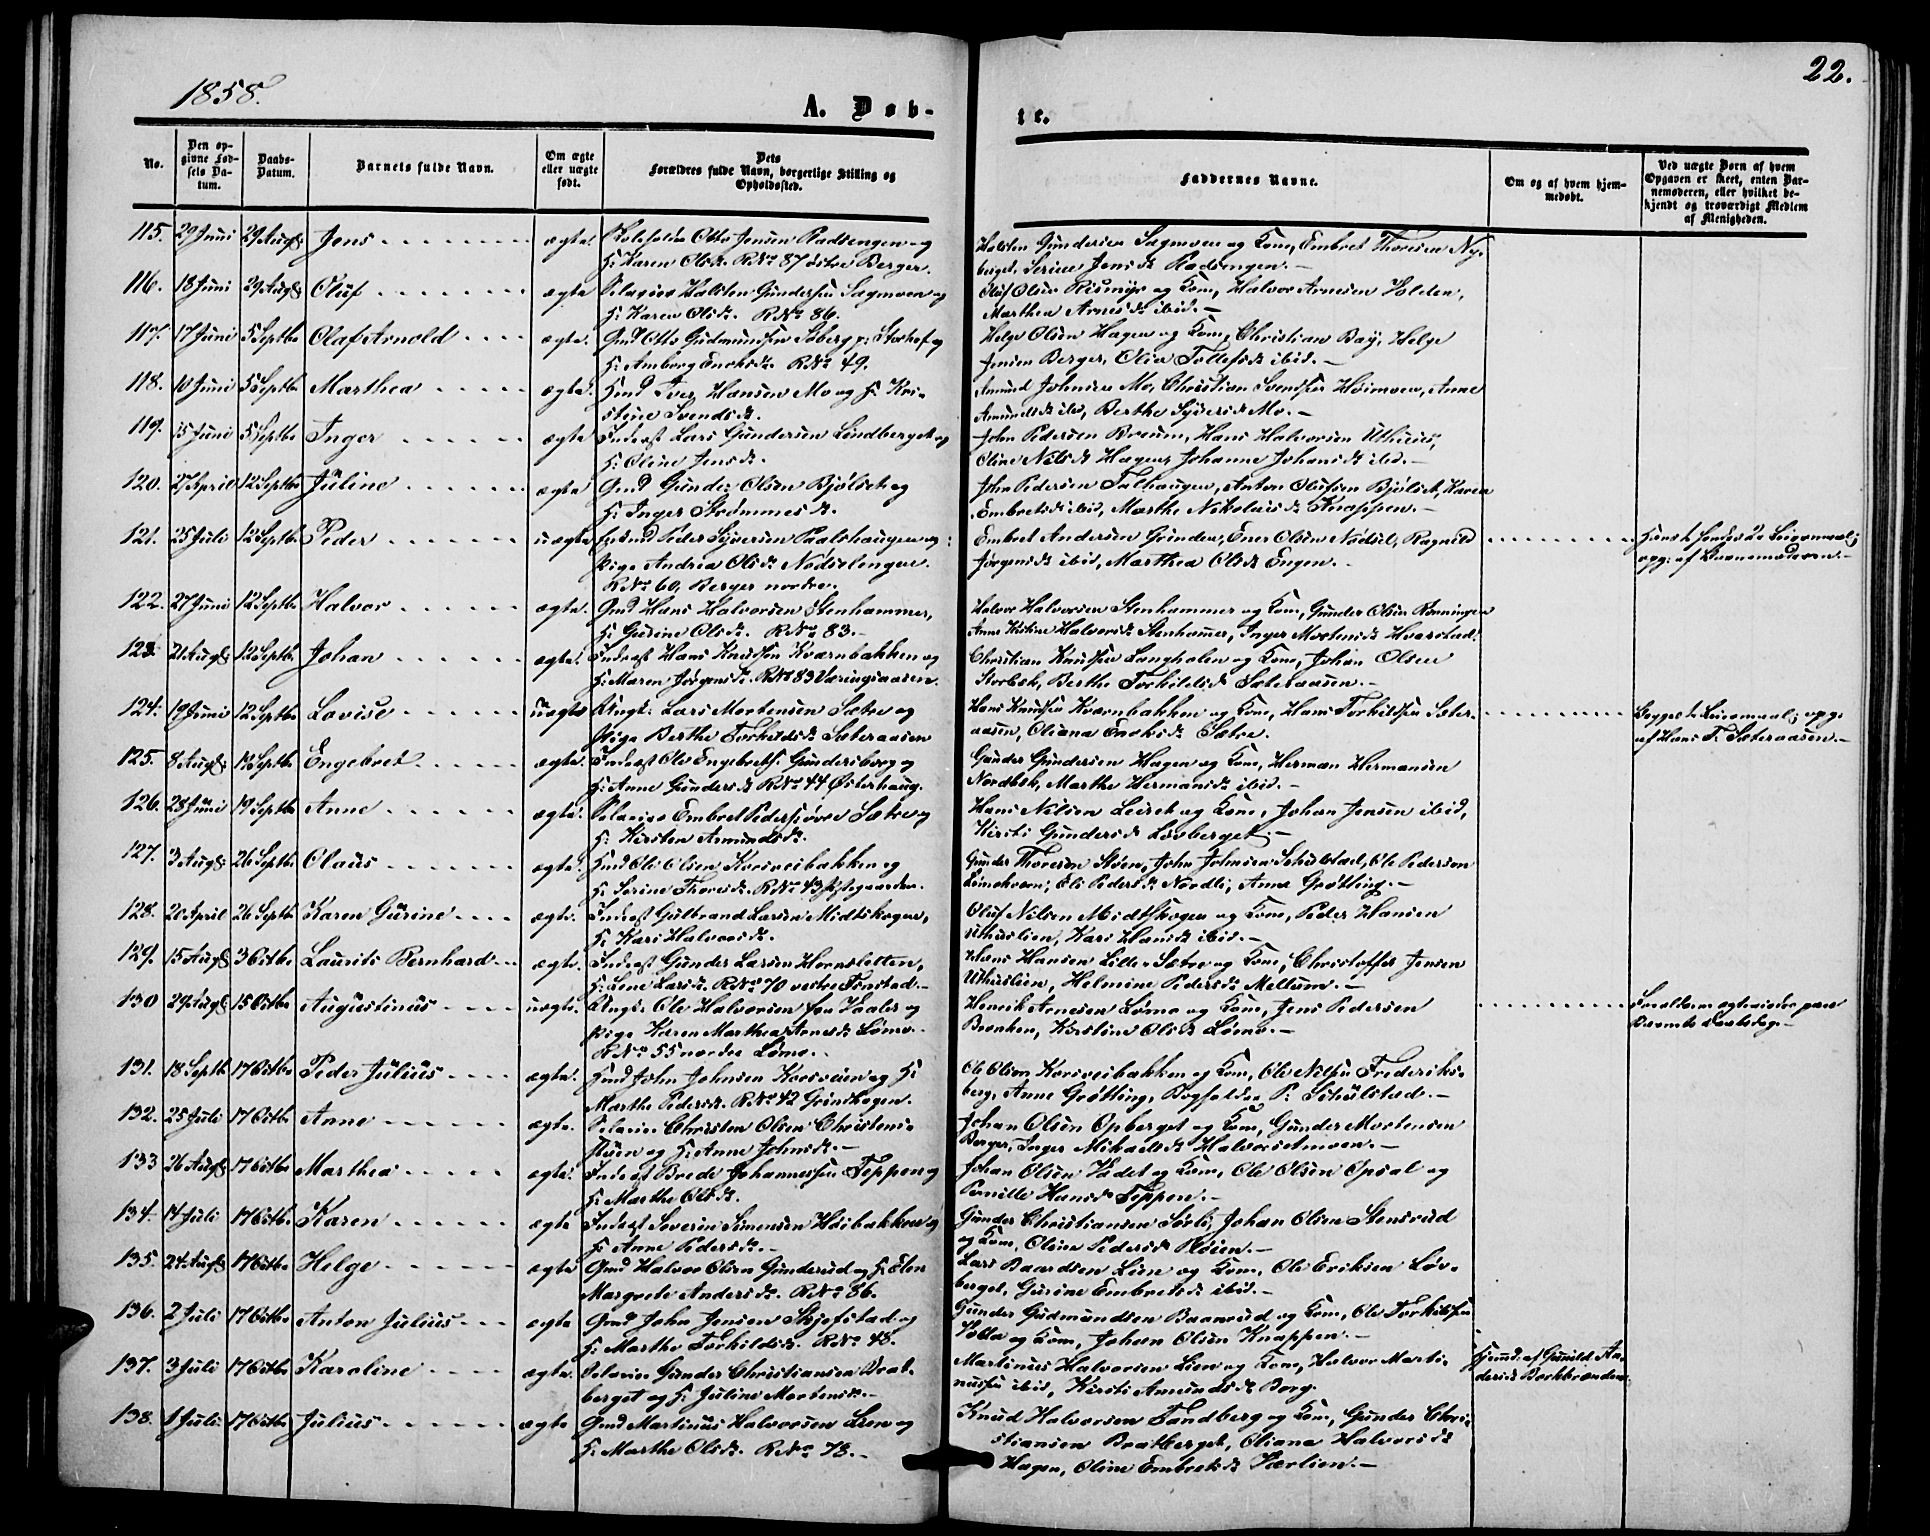 1858.
22.
A. Døb-
te.
No.
Den opgivne Fødsels Datum.
Daabs-Datum.
Barnets fulde Navn.
Om ægte eller uægte født.
Dets Forældres fulde Navn, borgerlige Stilling og Opholdssted.
Faddernes Navne.
Om og af hvem hjemmedøbt.
Ved uægte Børn af hvem Opgaven er skeet, enten Barnemoderen, eller hvilket bekjendt og troværdigt Medlem af Menigheden.
115. 29 Juni 29 Augs Jens ægte. Otto Jensen Radsengen og
H: Karen Olsd. RNo 87 østre Berger.
Halsten Gundersen Sagmoen og Kone, Embret Thoresen Ny-
berget, Serine Jensd. Radsengen.-
116. 18 Juni 29 Augs Oluf ægte Halsten Gundersen Sagmoen og
H: Karen Olsd. RNo 86.
Oluf Olsen Rismyr og Kone, Halvor Arnesen Holden,
Marthea Arnesd. ibid.-
117. 17 Juni 5 Septbr Olaf Arnold ægte. Gmd Otto Gudmundsen Søberg p: Storhof og
H: Amborg Enoksd. RNo 49.
Helge Olsen Hagen og Kone, Christian Bay, Helge
Jensen Berger, Olia Tollefsd. ibid.-
118. 10 Juni 5 Septbr Marthea ægte. Hmd Iver Hansen Mo og H: Kri-
stine Svendsd.
Amund Johnsen Mo, Christian Svendsen Høimoen, Anne
Amundsd. ibid, Berthe Syversd. Mo.-
119. 15 Juni 5 Septbr Inger ægte Inderst Lars Gundersen Lindberget og
H: Oline Jensd.
John Pedersen Breum, Hans Halvorsen Uthuus,
Oline Nilsd. Hagen, Johanne Johansd. ibid.-
120. 27 April 12 Septbr Juline ægte Gmd Gunder Olsen Bjølset og
H: Inger Strømmesd.
John Pedersen Falhaugen, Anton Olufsen Bjølset, Karen
Embretsd. ibid, Marthe Nikolaisd. Knappen.-
121. 25 Juli 12 Septbr Peder uægte Peder Syversen Paalshaugen og
Pige Andrea Olsd. Nødselengen
RNo 60, Berger nordre.
Embret Andersen Grinder, Ener Olsen Nødsel, Ragnild
Jørgensd. ibid, Marthea Olsd. Engen.-
Hans & hendes 2e Leiermaal;
opg: af Barnemoderen.-
122. 27 Juni 12 Septbr Halvor ægte. Gmd Hans Halvorsen Stenhammer,
H: Gurine Olsd. RNo 83.-
Halvor Halvorsen Stenhammer og Kone, Gunder Olsen Rønningen
Anne Kristine Halvorsd. Stenhamer, Inger Mortensd. Hvarstad.
123. 21 Augs 12 Septbr Johan ægte. Inderst Hans Knudsen Kværnbakken og
H: Maren Jørgensd. RNo 83 Væringsaasen.
Christian Knudsen Langholen og Kone, Johan Olsen
Storbek, Berthe Torkildsd. Sæteraasen.-
124. 19 Juni 12 Septbr Lovise uægte Ungk: Lars Mortensen Sætre og
Pige Berthe Torkildsd. Sæteraasen
Hans Knudsen Kværnbakken og Kone, Hans Torkildsen Sæter-
aasen, Oliana Enoksd. Sætre.
Begges 1e Leiermaal; opg:
af Hans T. Sæteraasen.-
125. 8 Augs 12 Septbr Engebret ægte. Inderst Ole Engebrets. Gundersberg og
H: Anne Gundersd. RNo 44 Østerhaug.
Gunder Gundersen Hagen og Kone, Herman Hermansen
Nordbek, Marthe Hermansd. ibid.-
126. 28 Juni 19 Septbr Anne ægte. Embret Peders. øvre Sætre og
H: Kirsten Amundsd.
Hans Nilsen Leiret og Kone, Johan Jensen ibid,
Kirsti Gundersd. Løvberget.-
127. 3 Augs 26 Septbr Olaus ægte. Hmd Ole Olsen Korsveibakken og
H: Serine Thoresd. RNo 43
Gunder Thoresen Støen, John Johnsen Schulstad, Ole Pedersen
Eli Pedersd. Nordli, Anne Grøtting.-
128. 20 April 26 Septbr Karen Gurine ægte. Inderst Gulbrand Larsen Midtskogen,
H: Kari Halvorsd.
Oluf Nilsen Midtskogen og Kone, Peder Hansen
Uthuslien, Kari Hansd. ibid.-
129. 15 Augs 3 Octbr Laurits Bernhard ægte. Inderst Gunder Larsen Hornsletten,
H: Lene Larsd. RNo 70 vestre Finstad.-
Hans Hansen Lille Sætre og Kone, Christoffer Jensen
Uthuslien, Helmine Pedersd. Mellum.-
130 29 Augs 15 Octbr Augustinus uægte. Ungk: Ole Halvorsen fra Vaaler og
Pige Karen Marthea Arnesd. Lømo.-
RNo 55 nordre Lømo.-
Henrik Arnesen Lømo og Kone, Jens Pedersen
Brenken, Kirstine Olsd. Lømo.-
Forældrene ægteviedes paa
Barnets Daabsdag.-
131. 18 Septb 17 Octbr Peder Julius ægte. Hmd John Johnsen Korsveien og H:
Marthe Pedersd. RNo 42 Grindhagen.
Ole Olsen Korsveibakken og Kone, Ole Nilsen Frederiks-
berg, Anne Grøtting, P. Schulstad.-
132. 25 Juli 17 Octbr Anne ægte. Christen Olsen Christens-
stuen og H: Anne Johnsd.-
Johan Olsen Opberget og Kone, Gunder Mortensen
Berger, Inger Mikaelsd. Halvorsetmoen.-
133 26 Augs 17 Octbr Marthea ægte. Inderst Brede Johannessen Teppen og
H: Marthe Olsd.
Johan Olsen Vadet og Kone, Ole Olsen Opsal og
Pernille Hansd. Teppen.-
134. 14 Juli 17 Octbr Karen ægte Inderst Severin Simensen Høibakken og
H: Anne Pedersd.-
Gunder Christiansen Sørli, Johan Olsen Stensrud
og Kone, Oline Pedersd. Moien.-
135. 24 Augs 17 Octbr Helge ægte Gmd Halvor Olsen Gunderud og H: Elen
Margrete Andersd. RNo 86.
Lars Baardsen Lien og Kone, Ole Eriksen Løv-
berget, Gurine Embretsd. ibid.-
136. 2 Juli 17 Octbr Anton Julius ægte Gmd John Jensen Skjefstad og
H: Marthe Torkildsd. RNo 48.
Gunder Gudmundsen Baanrud og Kone, Ole Torkildsen
Volla og Kone, Johan Olsen Knappen.-
137. 3 Juli 17 Octbr Karoline ægte. Gunder Christiansen Brat-
berget og H: Juline Mortensd.-
Martinus Halvorsen Lien og Kone, Halvor Marti-
nussen ibid, Kirsti Amundsd. Borg.
Hjemd. af Gunild An-
dersd. Bækbrænden
138. 1 Juli 17 Octbr Julius ægte Gmd Martinus Halvorsen Lien og
H: Marthe Olsd. RNo 78.-
Knud Halvorsen Sandberg og Kone, Gunder Chri-
stiansen Bratberget, Oliana Halvorsd.
Hagen, Oline Embretsd. Værlien.-